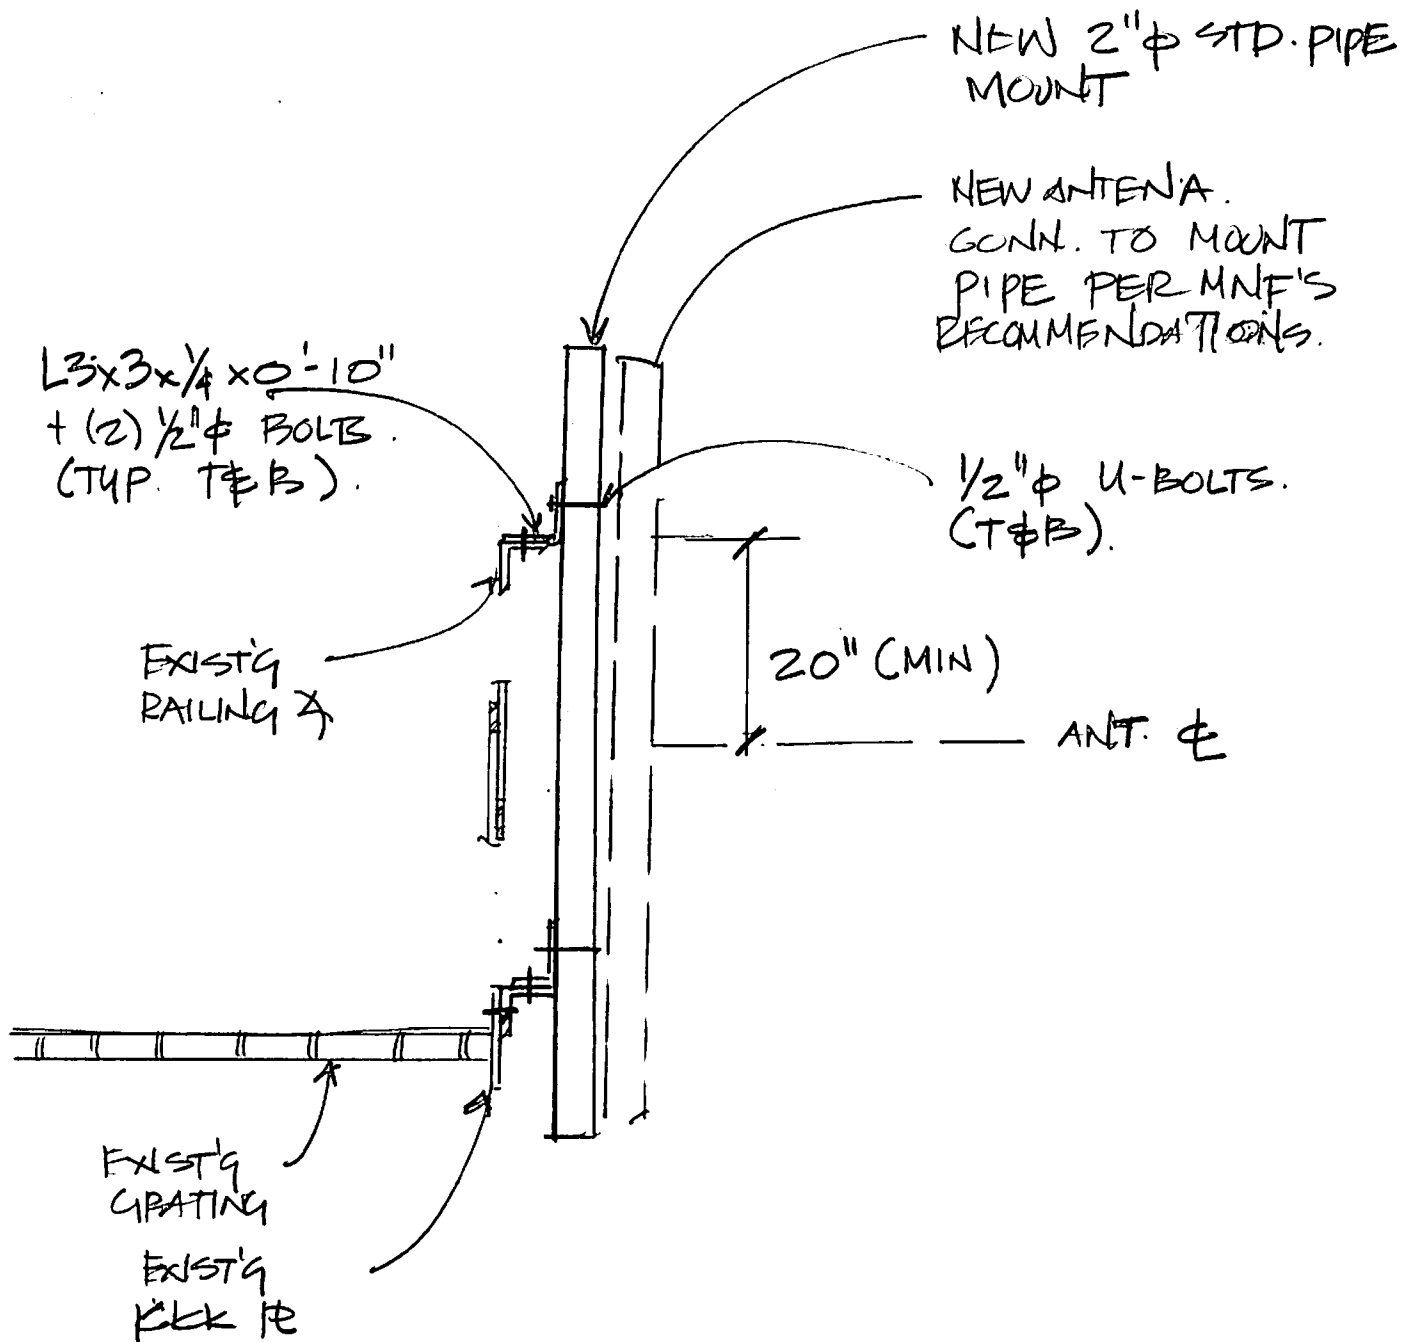 NEW 2"ϕ STD. PIPE
MOUNT
NEW ANTEN'A.
CONN. TO MOUNT
PIPE PER MNF'S
RECOMMENDATIONS.
L3x3x1/4 x0'-10"
+ (2) 1/2"ϕ BOLTS.
(TYP. T&B).
1/2"ϕ U-BOLTS.
(T&B).
EXIST'G
RAILING ∠
20" (MIN)
ANT. ℄
EXIST'G
GRATING
EXIST'G
KICK PL